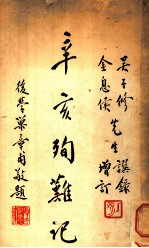 吴子修
金息侯先生譔錄增訂
辛亥殉難記
後學章甫敬題